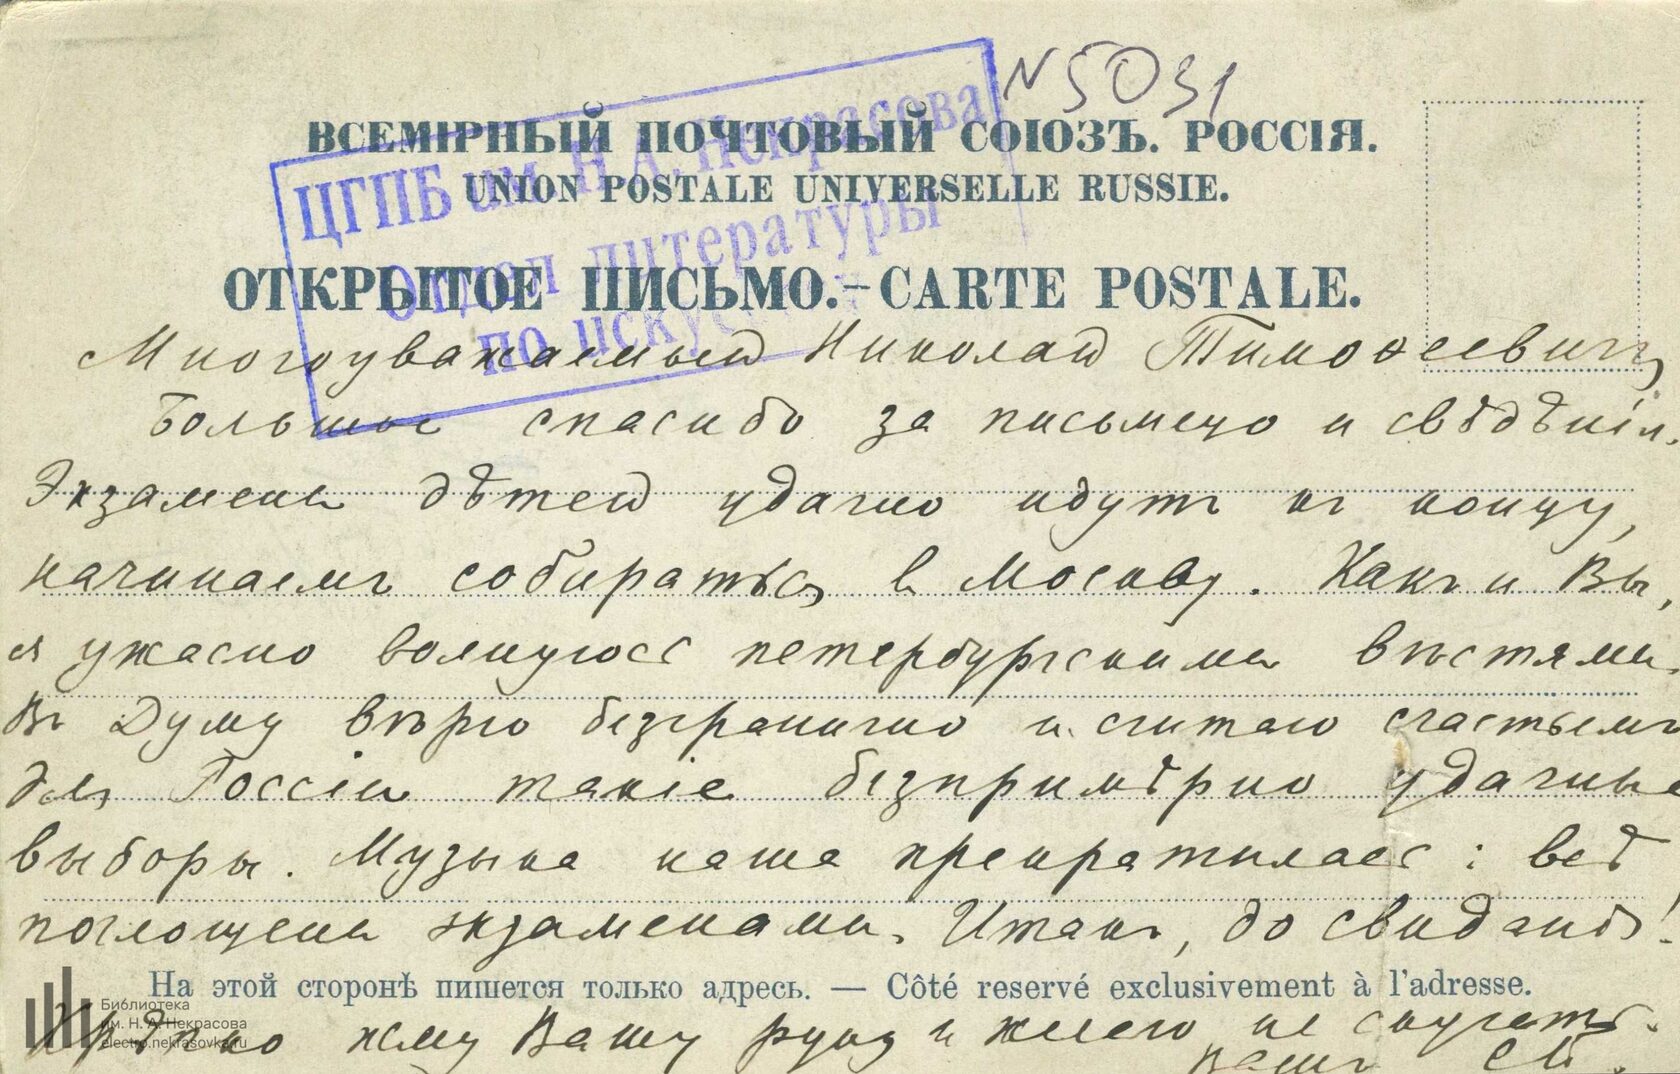 N 5031
ВСЕМІРНЫЙ ПОЧТОВЫЙ СОЮЗЪ. РОССІЯ.
UNION POSTALE UNIVERSELLE RUSSIE.
ОТКРЫТОЕ ПИСЬМО.–CARTE POSTALE.
ЦГПБ им. Н. А. Некрасова
Отдел литературы
по искус
Многоуважаемый Николай Тимоѳеевичъ,
Большое спасибо за письмецо и свѣдѣнія.
Экзамены дѣтей удачно идутъ къ концу,
начинаемъ собираться въ Москву. Какъ и Вы,
я ужасно волнуюсь петербургскими вѣстями.
Въ Думу вѣрю безгранично и считаю счастьемъ
для Россіи такіе безпримѣрно удачные
выборы. Музыка наша прекратилась: всѣ
поглощены экзаменами. Итакъ, до свиданія!
На этой сторонѣ пишется только адресъ. — Côté reservé exclusivement à l'adresse.
Крѣпко жму Вашу руку и желаю не скучать.
Вашъ
Библиотека
им. Н. А. Некрасова
electro.nekrasovka.ru